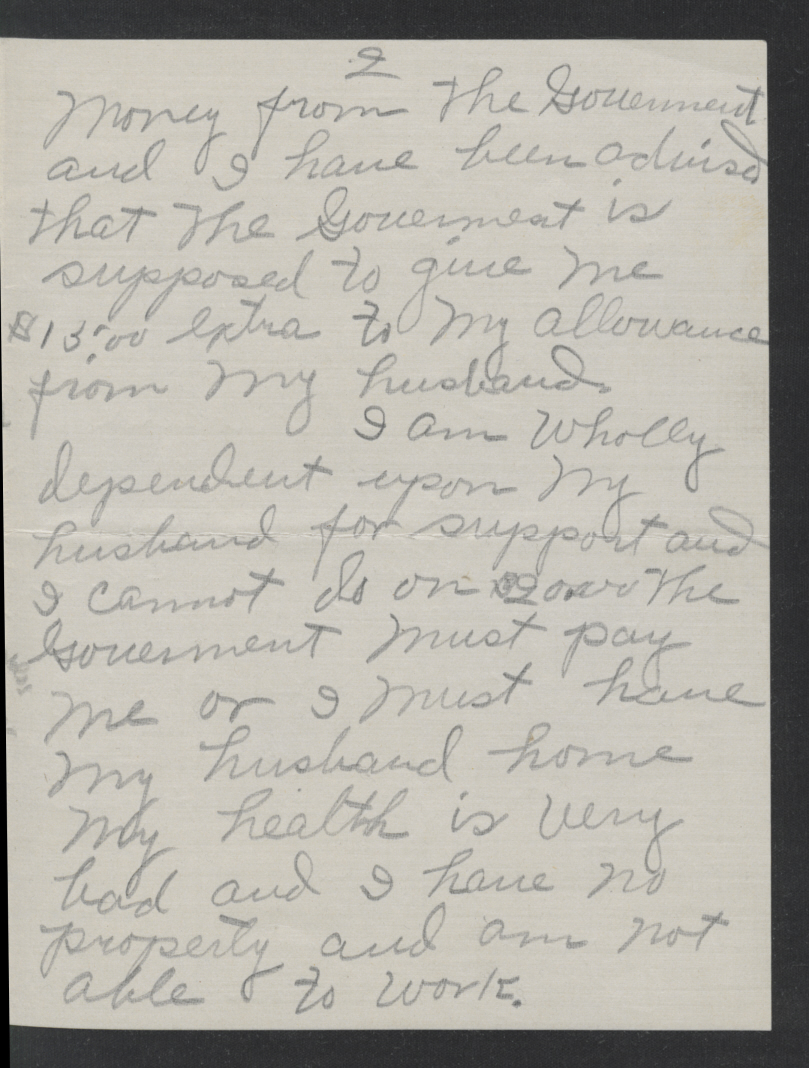 2
Money from The Government
and I have been advised
that The Government is
supposed to give me
$15.00 Extra to My allowance
from My husband.
I am Wholly
dependent upon My
husband for support and
I cannot do on The
Government Must pay
Me or I Must have
My husband home
My health is very
bad and I have no
property and am not
able to work.